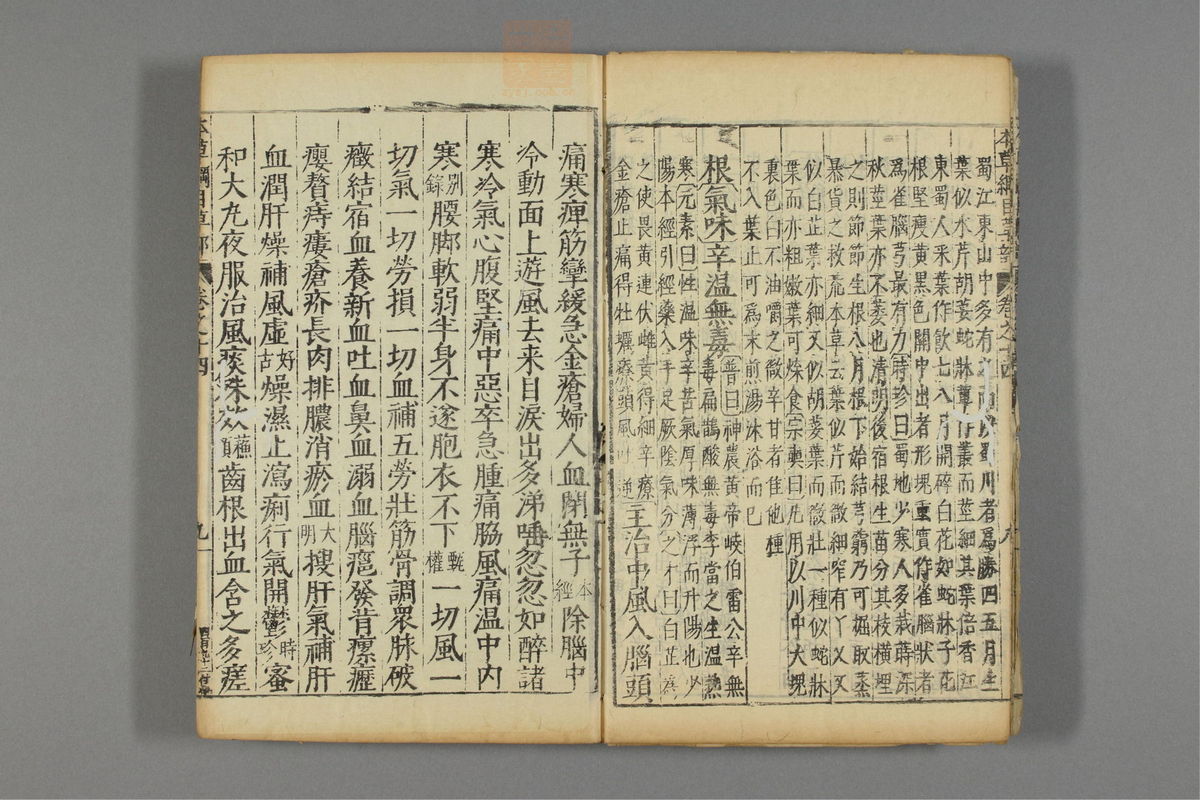 蜀江東山中多有而以蜀川者爲勝四五月生
葉似水芹胡荽蛇牀輩作叢而莖細其葉倍香江
東蜀人采葉作飲七八月開碎白花如蛇牀子花
根堅瘦黃黑色關中出者形塊重實作雀腦狀者
爲雀腦芎最有力時珍曰蜀地少寒人多栽蒔深
秋莖葉亦不萎也清明後宿根生苗分其枝橫埋
之則節節生根八月根下始結芎藭乃可掘取蒸
暴貨之救荒本草云葉似芹而微細窄有丫叉又
似白芷葉亦細又似胡荽葉而微壯一種似蛇牀
葉而亦粗嫩葉可煠食宗奭曰凡用以川中大塊
裏色白不油嚼之微辛甘者佳他種
不入藥止可爲末煎湯沐浴而已
根氣味辛温無毒普曰神農黃帝岐伯雷公辛無
毒扁鵲酸無毒李當之生温熱
寒元素曰性温味辛苦氣厚味薄浮而升陽也少
陽本經引經藥入手足厥陰氣分之才曰白芷爲
之使畏黃連伏雌黃得細辛療
金瘡止痛得牡蠣療頭風吐逆主治中風入腦頭
痛寒痺筋攣緩急金瘡婦人血閉無子本經除腦中
冷動面上遊風去來目淚出多涕唾忽忽如醉諸
寒冷氣心腹堅痛中惡卒急腫痛脇風痛温中内
寒别錄腰脚軟弱半身不遂胞衣不下甄權一切風一
切氣一切勞損一切血補五勞壯筋骨調衆脉破
癥結宿血養新血吐血鼻血溺血腦癰發背瘰癧
癭贅痔瘻瘡疥長肉排膿消瘀血大明搜肝氣補肝
血潤肝燥補風虛好古燥濕止瀉痢行氣開鬱時珍蜜
和大丸夜服治風痰殊效蘇頌齒根出血含之多瘥
本草綱目草部
卷之十四